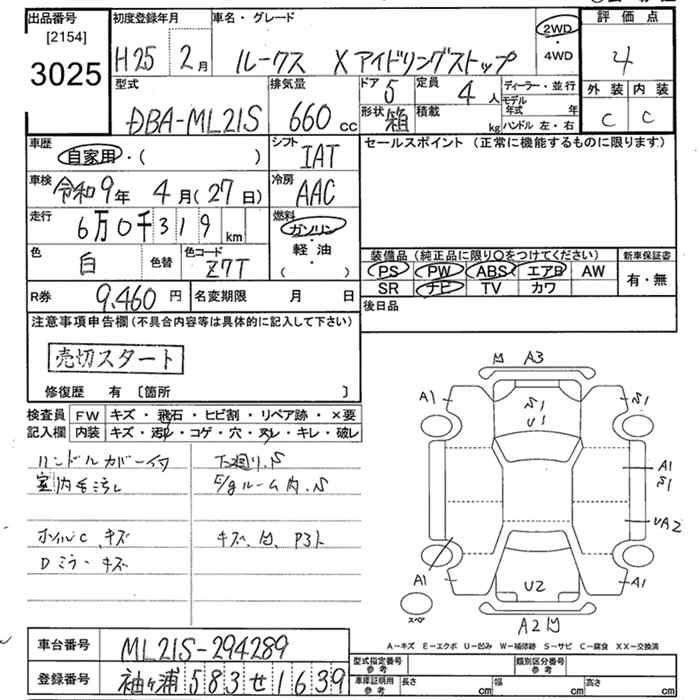 出品番号
[2154]
3025
初度登録年月
H25 2月
車名・グレード
ルークス Xアイドリングストップ
2WD
・
4WD
評価点
4
外装 内装
C C
型式
DBA-ML21S
排気量
660 cc
ドア
5
定員
4 人
形状
箱
積載
kg
ディーラー・並行
モデル年式 年
ハンドル 左・右
車歴
自家用・( )
シフト
IAT
車検
令和9年 4月(27日)
冷房
AAC
走行
6万0千319km
燃料
ガソリン
・
軽油
( )
色
白
色替
色コード
Z7T
R券
9,460円
名変期限 月 日
セールスポイント(正常に機能するものに限ります)
装備品(純正品に限り〇をつけてください)
PS PW ABS エアB AW
SR ナビ TV カワ
新車保証書
有・無
後日品
注意事項申告欄(不具合内容等は具体的に記入して下さい)
売切スタート
修復歴 有 〔箇所 〕
検査員
記入欄
FW キズ・飛石・ヒビ割・リペア跡・×要
内装 キズ・汚レ・コゲ・穴・ヌレ・キレ・破レ
ハンドルカバーイタ
室内毛汚レ
ホイルC、キズ
Dミラーキズ
下廻り.S
E/gルーム内.S
キズ、凹、P3ト
凹 A3
A1
S1
S1
U1
A1
S1
UA2
A1
U2
A1
スペア
A2凹
A－キズ E－エクボ U－凹み W－補修跡 S－サビ C－腐食 XX－交換済
車台番号
ML21S-294289
登録番号
袖ヶ浦583せ1639
型式指定番号
参考
類別区分番号
参考
車庫証明用
参考
長さ cm
幅 cm
高さ cm